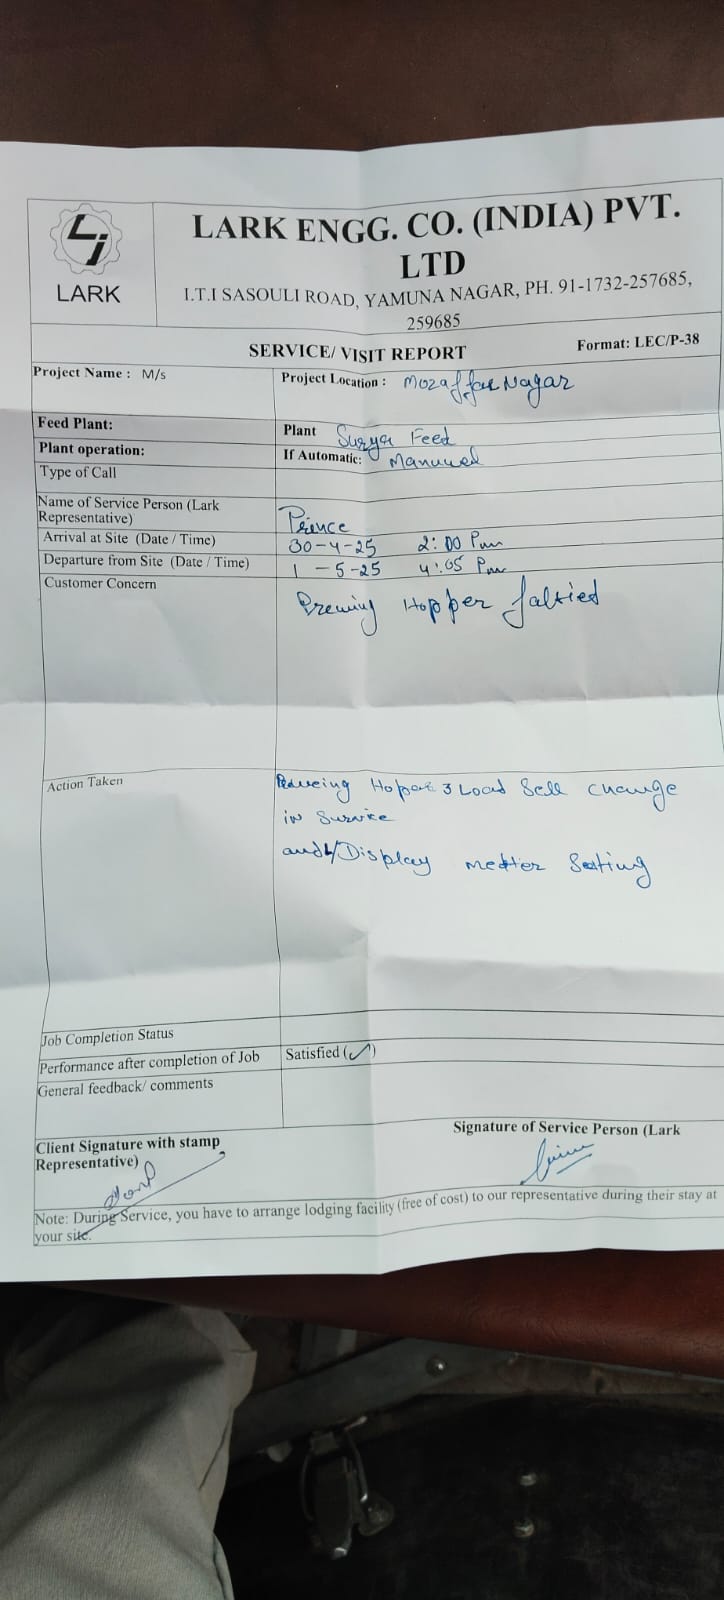 LARK ENGG. CO. (INDIA) PVT.
LTD
LARK
I.T.I SASOULI ROAD, YAMUNA NAGAR, PH. 91-1732-257685,
259685
SERVICE/ VISIT REPORT
Format: LEC/P-38
Project Name : M/s
Project Location : Mozaffar Nagar
Feed Plant:
Plant Surya Feed
Plant operation:
If Automatic: Manuwel
Type of Call
Name of Service Person (Lark
Representative)
Prince
Arrival at Site (Date / Time) 30-4-25 2:00 Pm
Departure from Site (Date / Time) 1-5-25 4:05 Pm
Customer Concern
Hopper
Action Taken
Hoper 3 Load Sell change
in Survice
Display metter Setting
Job Completion Status
Performance after completion of Job Satisfied (✓)
General feedback/ comments
Signature of Service Person (Lark
Client Signature with stamp
Representative)
Note: During Service, you have to arrange lodging facility (free of cost) to our representative during their stay at
your site.